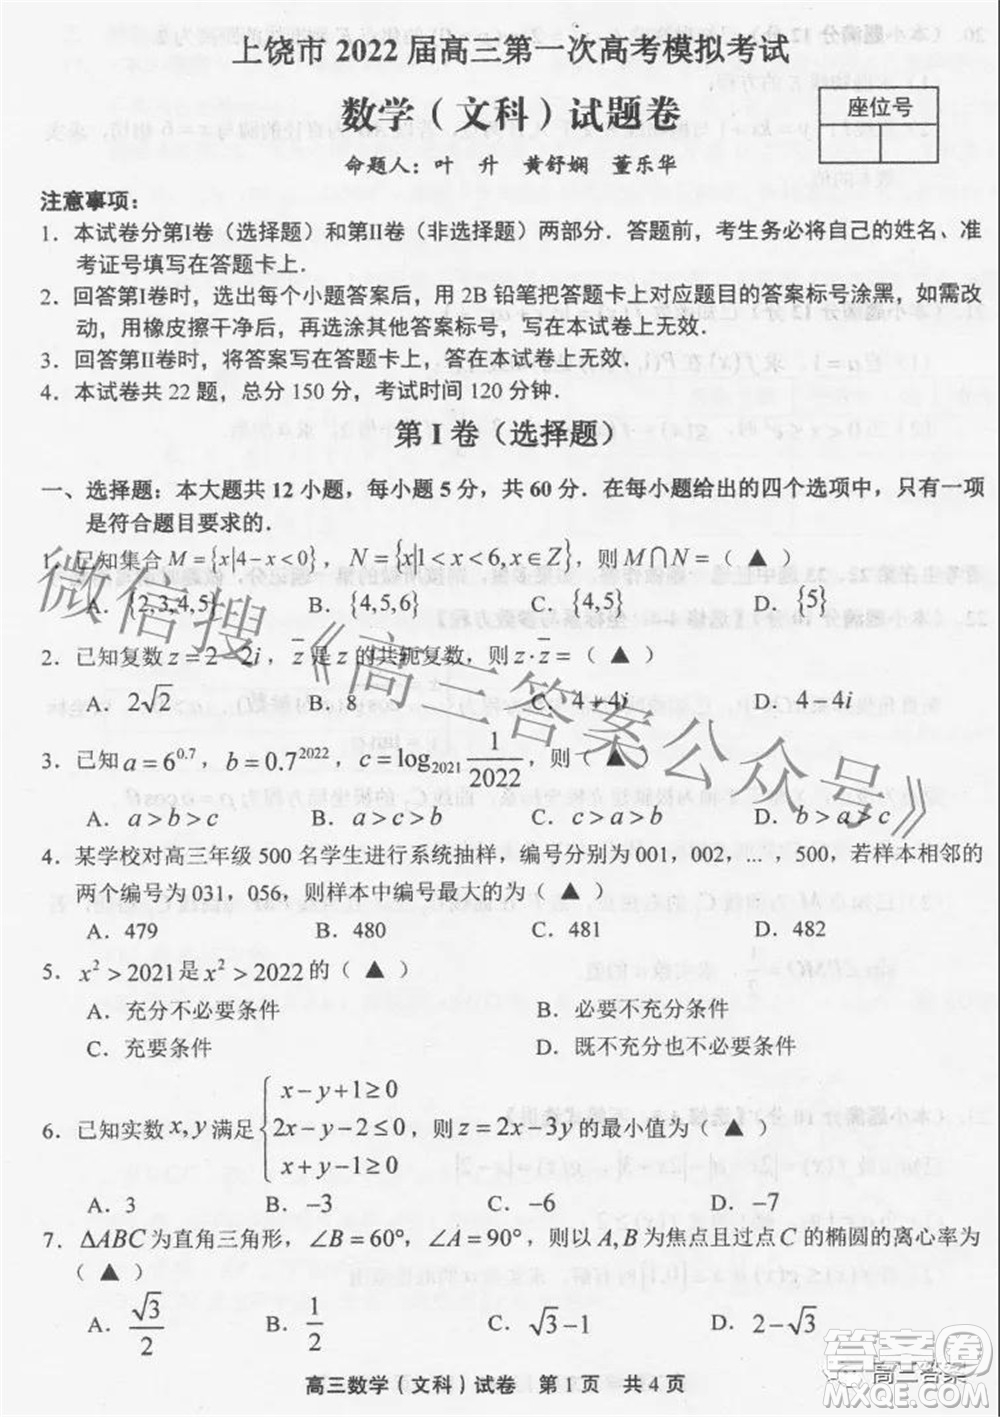 上饶市 2022 届高三第一次高考模拟考试
数学（文科）试题卷
座位号
命题人：叶 升 黄舒娴 董乐华
注意事项：
1．本试卷分第I卷（选择题）和第II卷（非选择题）两部分．答题前，考生务必将自己的姓名、准
考证号填写在答题卡上．
2．回答第I卷时，选出每个小题答案后，用 2B 铅笔把答题卡上对应题目的答案标号涂黑，如需改
动，用橡皮擦干净后，再选涂其它答案标号，写在本试卷上无效．
3．回答第II卷时，将答案写在答题卡上，答在本试卷上无效．
4．本试卷共 22 题，总分 150 分，考试时间 120 分钟．
第 I 卷（选择题）
一、选择题：本大题共 12 小题，每小题 5 分，共 60 分．在每小题给出的四个选项中，只有一项
是符合题目要求的．
1．已知集合 M = {x|4−x<0}，N = {x|1<x<6, x∈Z}，则 M∩N =（ ▲ ）
A．{2,3,4,5} B．{4,5,6} C．{4,5} D．{5}
2．已知复数 z = 2−2i，z̅ 是 z 的共轭复数，则 z·z̅ =（ ▲ ）
A．2√2 B．8 C．4+4i D．4−4i
3．已知 a = 6^0.7，b = 0.7^2022，c = log_2021 1/2022，则（ ▲ ）
A．a>b>c B．a>c>b C．c>a>b D．b>a>c
4．某学校对高三年级 500 名学生进行系统抽样，编号分别为 001，002，…，500，若样本相邻的
两个编号为 031，056，则样本中编号最大的为（ ▲ ）
A．479 B．480 C．481 D．482
5．x² > 2021 是 x² > 2022 的（ ▲ ）
A．充分不必要条件 B．必要不充分条件
C．充要条件 D．既不充分也不必要条件
6．已知实数 x, y 满足 { x−y+1≥0
2x−y−2≤0，则 z = 2x−3y 的最小值为（ ▲ ）
x+y−1≥0
A．3 B．−3 C．−6 D．−7
7．ΔABC 为直角三角形，∠B = 60°，∠A = 90°，则以 A, B 为焦点且过点 C 的椭圆的离心率为
（ ▲ ）
A．√3/2 B．1/2 C．√3−1 D．2−√3
高三数学（文科）试卷 第 1 页 共 4 页
微信搜《高三答案公众号》
答案圈
高三答案